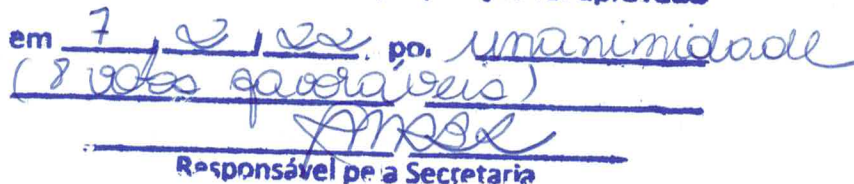 em 7 / 2 / 22 por unanimidade
(8 votos favoráveis)
Responsável pela Secretaria